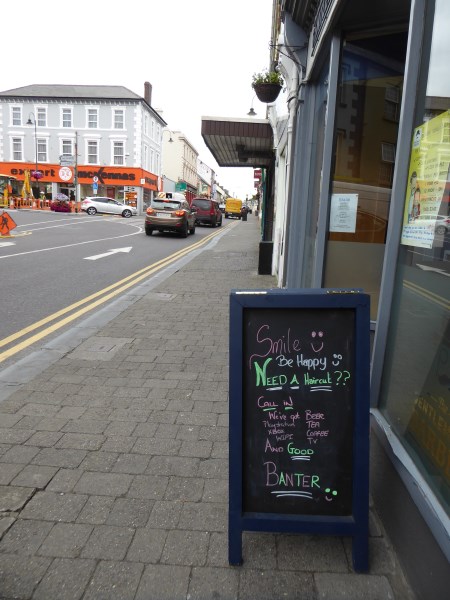 expert
McKENNAS
Smile
Be Happy
NEED A Haircut??
CALL IN
We've got BEER
Playstation TEA
XBOX COFFEE
WIFI TV
AND GOOD
BANTER